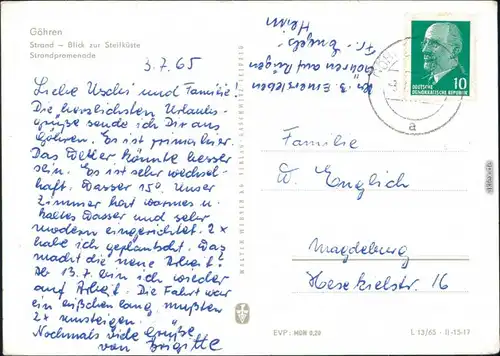 Göhren
Strand – Blick zur Steilküste
Strandpromenade
3.7.65
Liebe Uschi und Familie!
Die herzlichsten Urlaubs-
grüße sende ich Dir aus
Göhren. Es ist prima hier.
Das Wetter könnte besser
sein. Es ist sehr wechsel-
haft. Wasser 15°. Unser
Zimmer hat warmes u.
kaltes Wasser und sehr
modern eingerichtet. 2x
habe ich geplantscht. Was
macht die neue Arbeit?
Ab 13.7. bin ich wieder
auf Arbeit. Die Fahrt war
ein bißchen lang mußten
2x umsteigen.
Nochmals viele Grüße
von Brigitte
Göhren auf Rügen
Fr. Engels-
Heim
DEUTSCHE
DEMOKRATISCHE REPUBLIK
10
a
Familie
W. Englich
Magdeburg
Hesekielstr. 16
EVP: MDN 0,20
L 13/65 · II-15-17